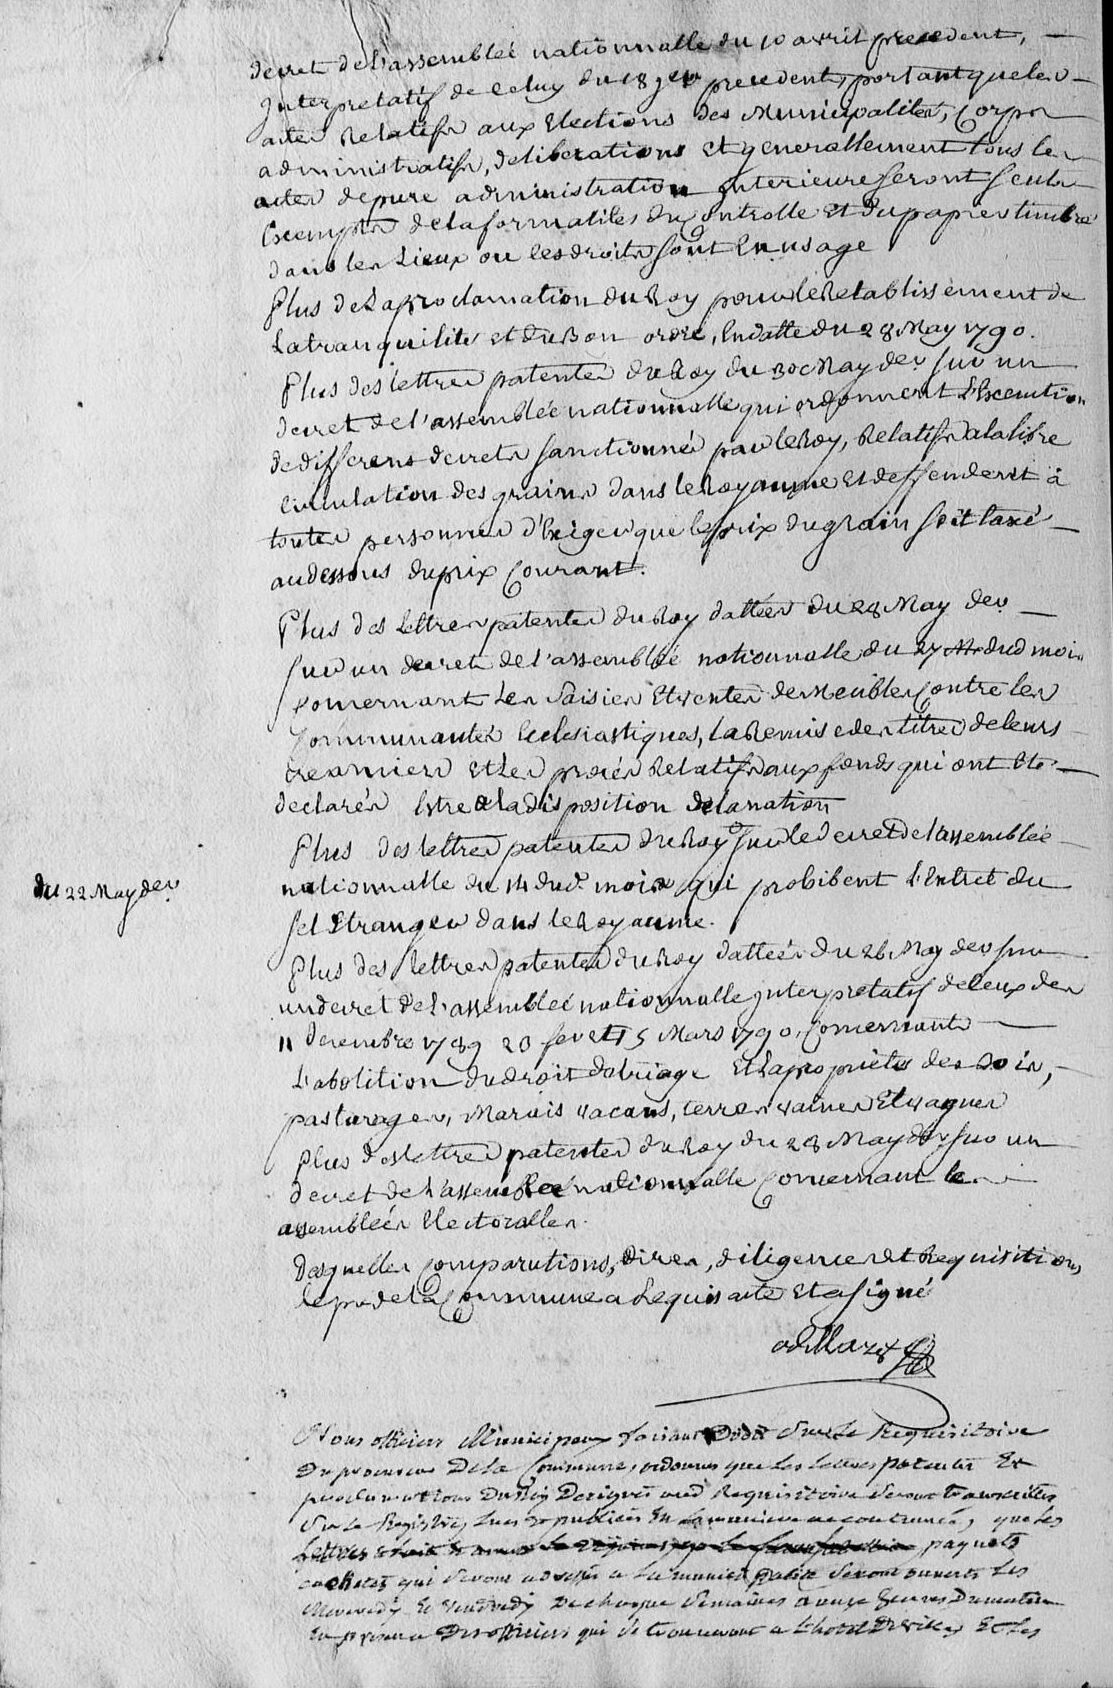 decret de l'assemblée nationnalle du 10 avril precedent,
Interpretatif de celuy du 18 Jer precedent, portant que les
actes Relatifs aux Elections des Municipalités, Corps
administratifs, deliberations et generallement tous les
actes de pure administration Interieure seront seuls
Exempts de la formalités du Controlle et du papier timbré
dans les Lieux ou les droits sont En usage
Plus de La proclamation du Roy pour le Retablissement de
La tranquilité et du Bon ordre, En datte du 28 May 1790.
Plus des lettres patentes du Roy du 30 May der sur un
decret de l'assemblée nationnalle qui ordonnent L'Execution
de differens decrets sanctionné par le Roy, Relatifs a la libre
circulation des grains dans le Royaume Et deffendent à
toutes personnes d'Exiger que le prix du grain soit taxé
au dessous du prix Courant.
Plus des lettres patentes du Roy dattées du 28 May der
sur un decret de l'assemblée nationnalle du 27 dud mois
concernant Les Saisies Et ventes de Meubles Contre les
Communautés Ecclesiastiques, La Remise des titres de leurs
creanciers et Les procés Relatifs aux fonds qui ont Eté
declarés Estre a la disposition de la nation
du 22 May der
Plus des lettres patentes du Roy sur le decret de l'assemblée
nationnalle du 14 dud. mois qui prohibent L'Entret du
sel Etranger dans le Royaume.
Plus des lettres patentes du Roy dattées du 26 May der sur
un decret de l'assemblée nationnalle Interpretatif de ceux des
11 decembre 1789 23 fer et 15 Mars 1790, Concernants
L'abolition du droit de triage Et La propriétés des Bois,
pasturages, Marais vacans, terres vaines Et vagues
Plus des lettres patentes du Roy du 28 May der sur un
decret de l'assemblée nationnalle Concernant les
assemblées Electoralles.
Desquelles Comparutions, dires, diligences et Requisitions
le pr de la Commune a Requis acte Et a signé
Nous officiers Municipaux faisant droit sur Le Requisitoire
Du procureur De La Commune, ordonnons que Les Lettres patentes Et
proclamations Du Roy Designés aud Requisitoire seront transcrittes
sur Le Registre, Lues et publiées En La maniere accoutumée, que Les
paquets
cachetés qui seront adressés a La municipalité seront ouverts Les
Mercredy Et Vendredy De chaque semaines a onze heures Du matin
En presence Des officiers qui se trouveront a L'hotel De ville, Et Les